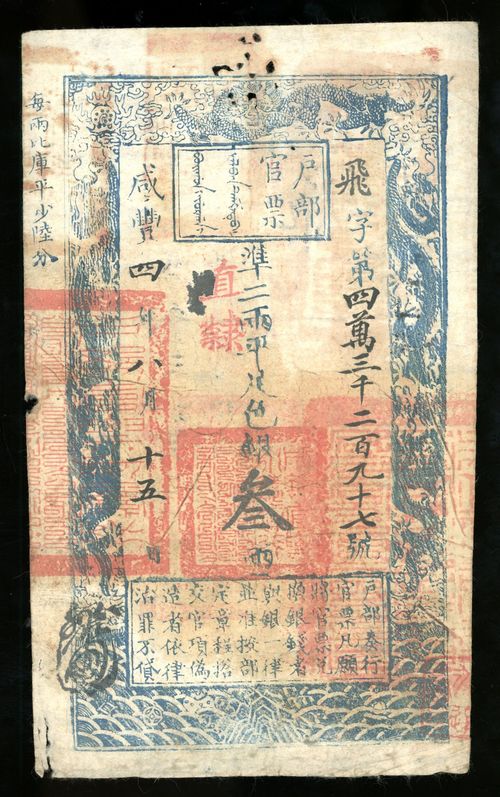 户部
官票
飛字第四萬三千二百九十七號
準二兩平足色銀叁兩
直隸
咸豐四年八月十五日
每兩比庫平少陸分
户部奏行
官票凡願
將官票兌
換銀錢者
與銀一律
並准按部
定章程搭
交官項偽
造者依律
治罪不貸